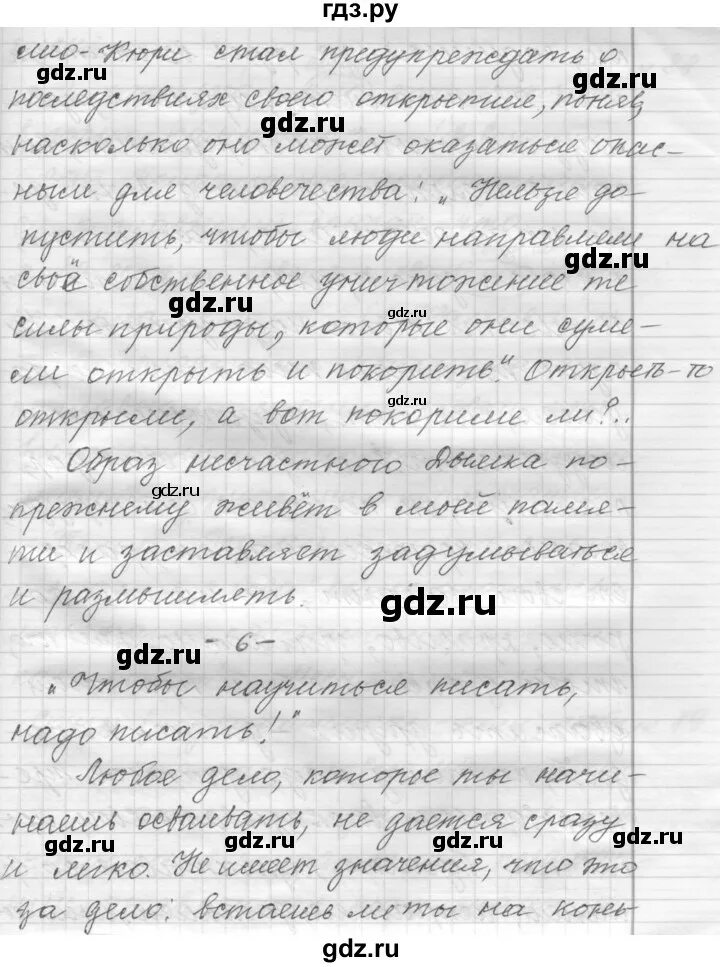 гдз.ру
лио-Кюри стал предупреждать о
последствиях своего открытия, поняв,
gdz.ru
насколько оно может оказаться опас-
ным для человечества: „Нельзя до-
пустить, чтобы люди направляли на
gdz.ru
своё собственное уничтожение те
gdz.ru
gdz.ru
силы природы, которые они суме-
ли открыть и покорить". Открыть-то
gdz.ru
открыли, а вот покорили ли?..
Образ несчастного Дымка по-
gdz.ru
прежнему живёт в моей памя-
ти и заставляет задумываться
и размышлять.
gdz.ru
- 6 -
gdz.ru
„Чтобы научиться писать,
надо писать!"
Любое дело, которое ты начи-
наешь осваивать, не дается сразу
gdz.ru
gdz.ru
gdz.ru
и легко. Не имеет значения, что это
за дело: встаешь ли ты на конь-
gdz.ru